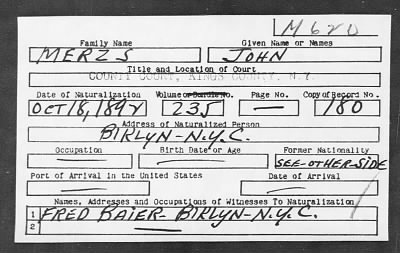 M620
Family Name Given Name or Names
MERZS JOHN
Title and Location of Court
COUNTY COURT, KINGS COUNTY, N.Y.
Date of Naturalization Volume or Bundle No. Page No. Copy of Record No.
OCT 18, 1892 235 — 180
Address of Naturalized Person
BIRLYN-N.Y.C.
Occupation Birth Date or Age Former Nationality
— — SEE-OTHER-SIDE
Port of Arrival in the United States Date of Arrival
— —
Names, Addresses and Occupations of Witnesses To Naturalization
1 FRED BAIER- BIKLYN-N.Y.C.
2 —